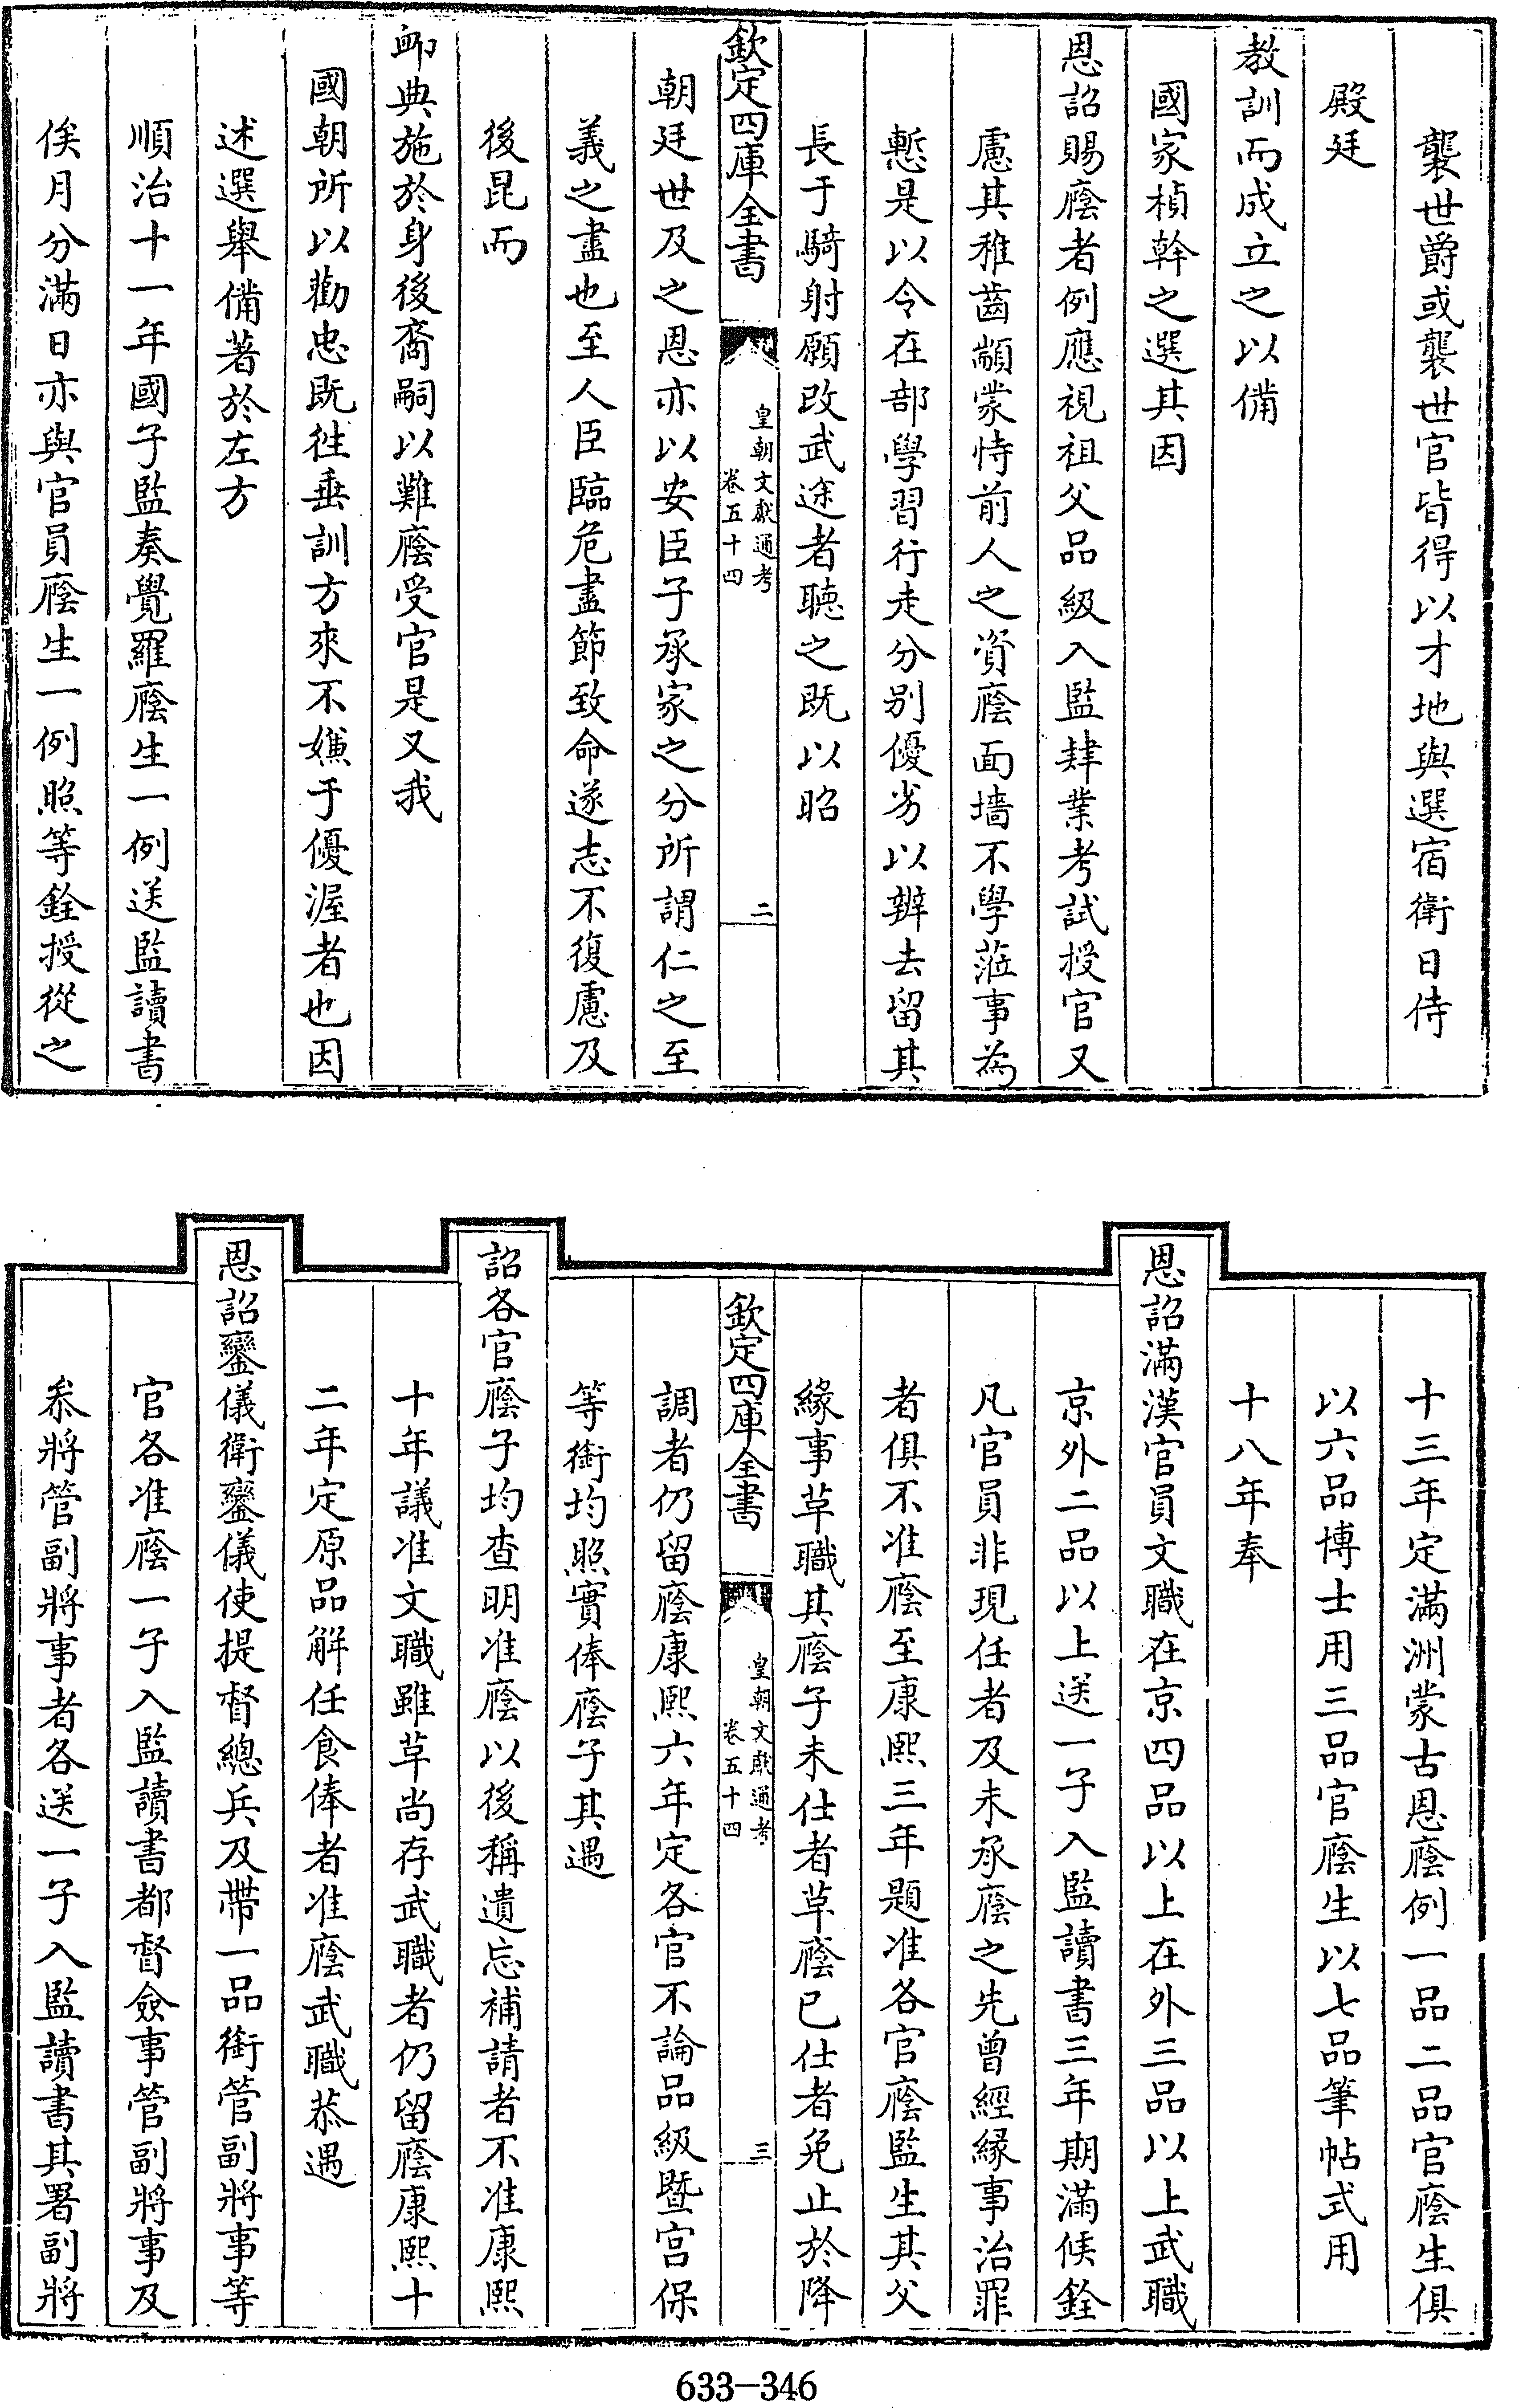 襲世爵或襲世官皆得以才地與選宿衛日侍
殿廷
教訓而成立之以備
國家楨幹之選其因
恩詔賜廕者例應視祖父品級入監肄業考試授官又
慮其稚齒顓蒙恃前人之資廕面墻不學蒞事為
慙是以令在部學習行走分别優劣以辨去留其
長于騎射願改武途者聽之既以昭
欽定四庫全書
皇朝文獻通考
卷五十四
二
朝廷世及之恩亦以安臣子承家之分所謂仁之至
義之盡也至人臣臨危盡節致命遂志不復慮及
後昆而
卹典施於身後裔嗣以難廕受官是又我
國朝所以勸忠既徃垂訓方來不嫌于優渥者也因
述選舉備著於左方
順治十一年國子監奏覺羅廕生一例送監讀書
俟月分滿日亦與官員廕生一例照等銓授從之
十三年定滿洲蒙古恩廕例一品二品官廕生俱
以六品博士用三品官廕生以七品筆帖式用
十八年奉
恩詔滿漢官員文職在京四品以上在外三品以上武職
京外二品以上送一子入監讀書三年期滿候銓
凡官員非現任者及未承廕之先曾經緣事治罪
者俱不准廕至康熙三年題准各官廕監生其父
緣事革職其廕子未仕者革廕已仕者免止於降
欽定四庫全書
皇朝文獻通考
卷五十四
三
調者仍留廕康熙六年定各官不論品級暨宫保
等銜均照實俸廕子其遇
詔各官廕子均查明准廕以後稱遺忘補請者不准康熙
十年議准文職雖革尚存武職者仍留廕康熙十
二年定原品解任食俸者准廕武職恭遇
恩詔鑾儀衛鑾儀使提督總兵及帶一品銜管副將事等
官各准廕一子入監讀書都督僉事管副將事及
叅將管副將事者各送一子入監讀書其署副將
633—346